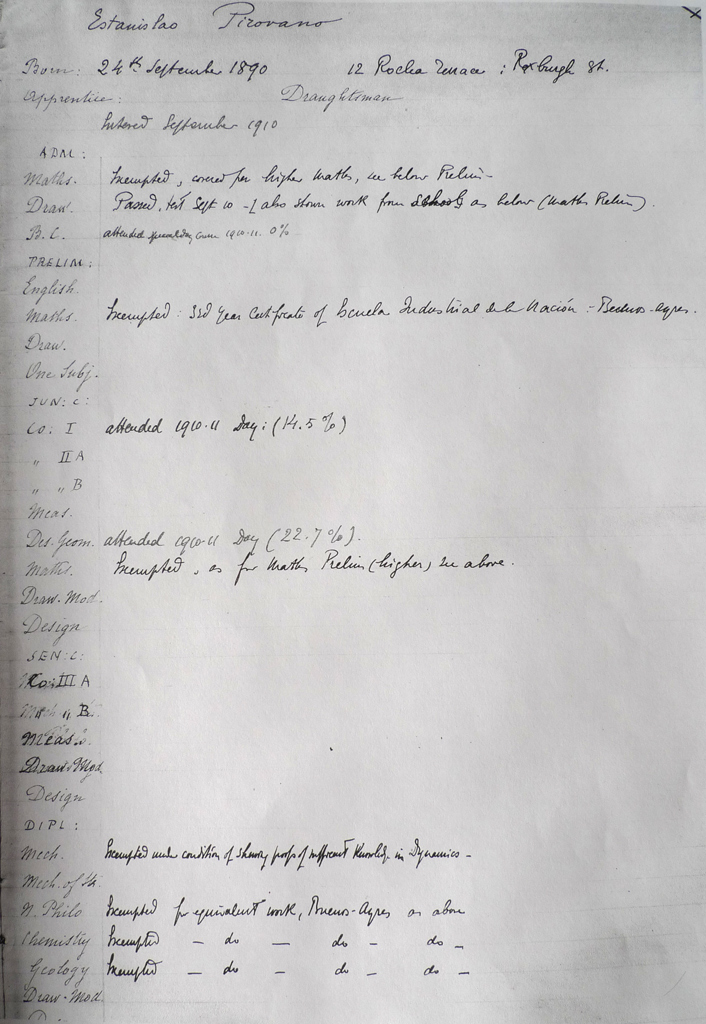 Estanislao Pirovano
Born: 24th September 1890 12 Rochea Terrace : Roxburgh St.
Apprentice: Draughtsman
Entered September 1910
ADM:
Maths. Exempted, covered per higher Maths, see below Prelim -
Draw. Passed, test Sept 10 - I also shown work from schools as below (Maths Prelim).
B.C. attended Day 1910-11. 0%
PRELIM:
English.
Maths. Exempted: 3rd Year Certificate of Escuela Industrial de la Nación - Buenos-Ayres.
Draw.
One Subj.
JUN: C:
Co: I attended 1910-11 Day: (14.5%)
" II A
" " B
Meas.
Des. Geom. attended 1910-11 Day (22.7%).
Maths. Exempted, as for Maths Prelim (higher) see above.
Draw. Mod.
Design
SEN: C:
Co: III A
" B.
Meas.
Draw. Mod.
Design
DIPL:
Mech. Exempted under condition of showing proofs of sufficient Knowledge in Dynamics -
Mech. of St.
N. Philo Exempted for equivalent work, Buenos-Ayres as above
Chemistry Exempted - do - do - do -
Geology Exempted - do - do - do -
Draw - Mod.